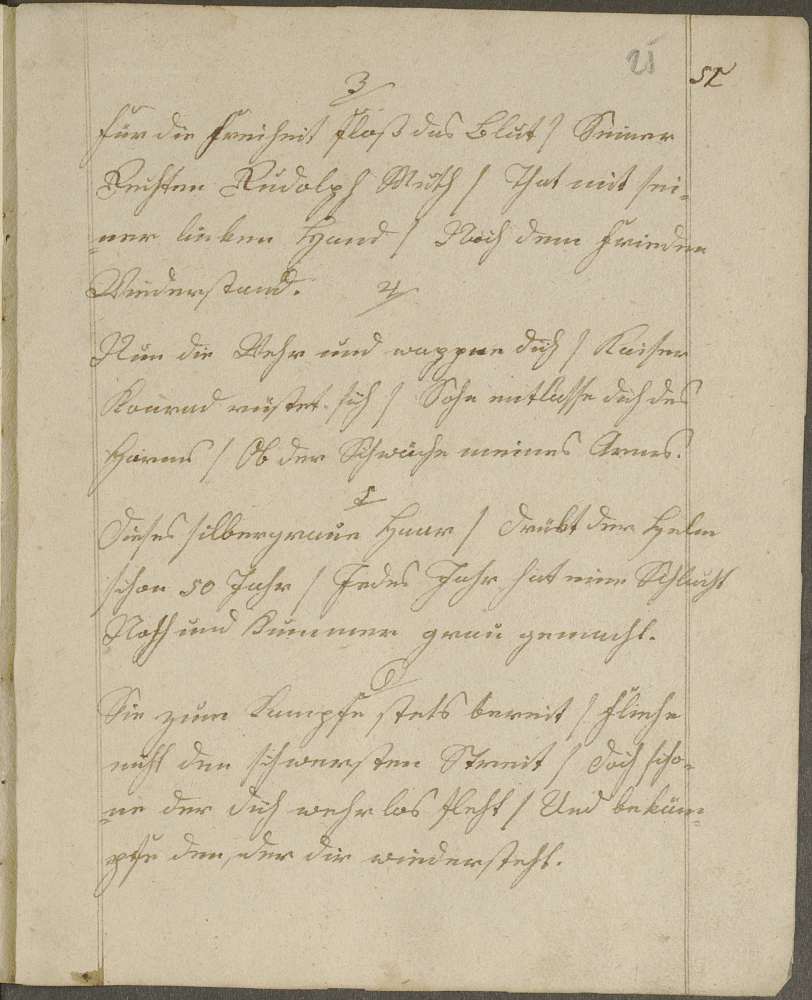 21 51
3/
Für die Freiheit floß das Blut / Seiner
Rechten Rudolph Muth / That mit sei-
-ner linken Hand / Noch dem Frieden
Wiederstand.
4/
Nim die Wehr und wappne dich / Kaiser
Konrad rüstet sich / Sohn entlasse dich des
Harms / Ob der Schwäche meines Arms.
5
Dieses silbergraue Haar / Drükt der Helm
schon 50 Jahr / Jedes Jahr hat eine Schlacht
Noth und Kummer grau gemacht.
6/
Sie zum Kampfe stets bereit / Fliehe
nicht den schwersten Streit / Doch scho-
-ne der dich wehrlos fleht / Und bekäm-
pfe den, der dir wiedersteht.